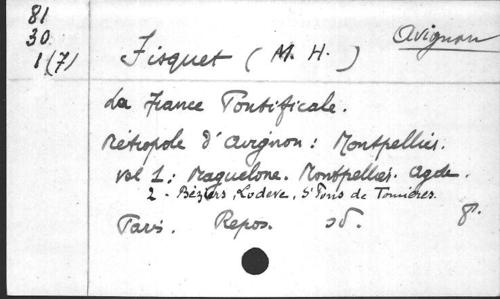 81
30.
1(7)
Avignon
Fisquet ( M. H. )
La France Pontificale.
Métropole d'Avignon : Montpellier.
vol 1 : Maguelone. Montpellier. Agde.
2 - Béziers, Lodève, St Pons de Tomières.
Paris. Repos. sd. 8°.